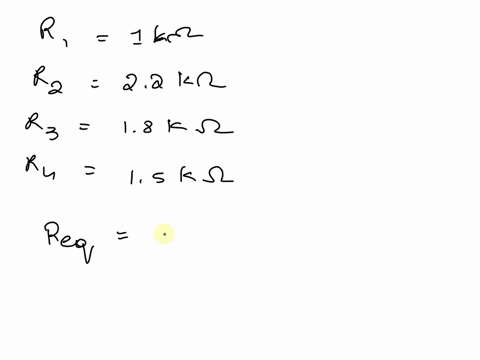 R₁ = 1 kΩ
R₂ = 2.2 kΩ
R₃ = 1.8 kΩ
R₄ = 1.5 kΩ
Req =